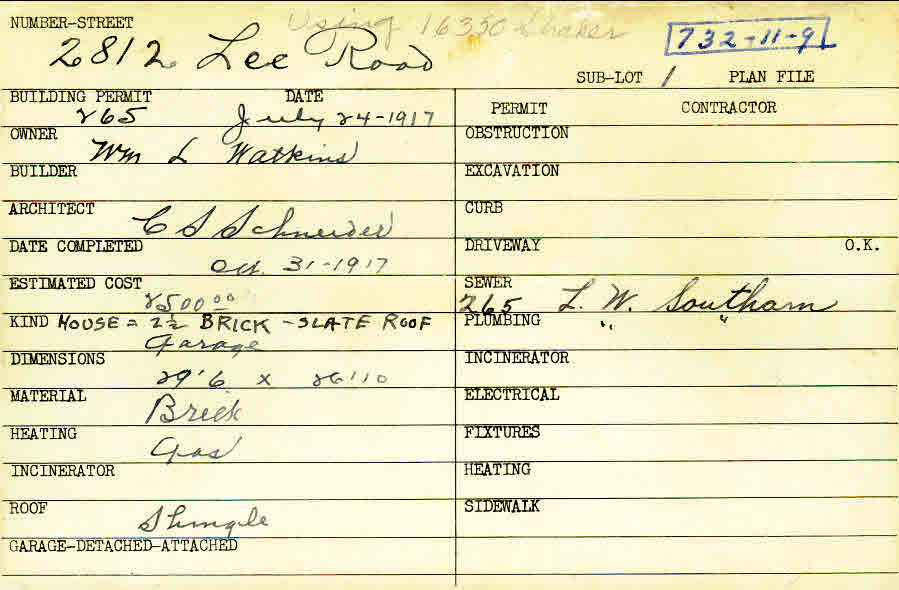 NUMBER-STREET Using 16350 Shaker
2812 Lee Road 732-11-9
SUB-LOT 1 PLAN FILE
BUILDING PERMIT DATE
265 July 24-1917
OWNER
Wm L Watkins
BUILDER
ARCHITECT
C S Schneider
DATE COMPLETED
Oct. 31-1917
ESTIMATED COST
2500 00
KIND HOUSE = 2½ BRICK - SLATE ROOF
Garage
DIMENSIONS
29'6 x 26'10
MATERIAL
Brick
HEATING
Gas
INCINERATOR
ROOF
Shingle
GARAGE-DETACHED-ATTACHED
PERMIT CONTRACTOR
OBSTRUCTION
EXCAVATION
CURB
DRIVEWAY O.K.
SEWER
265 L. W. Southam
PLUMBING " "
INCINERATOR
ELECTRICAL
FIXTURES
HEATING
SIDEWALK